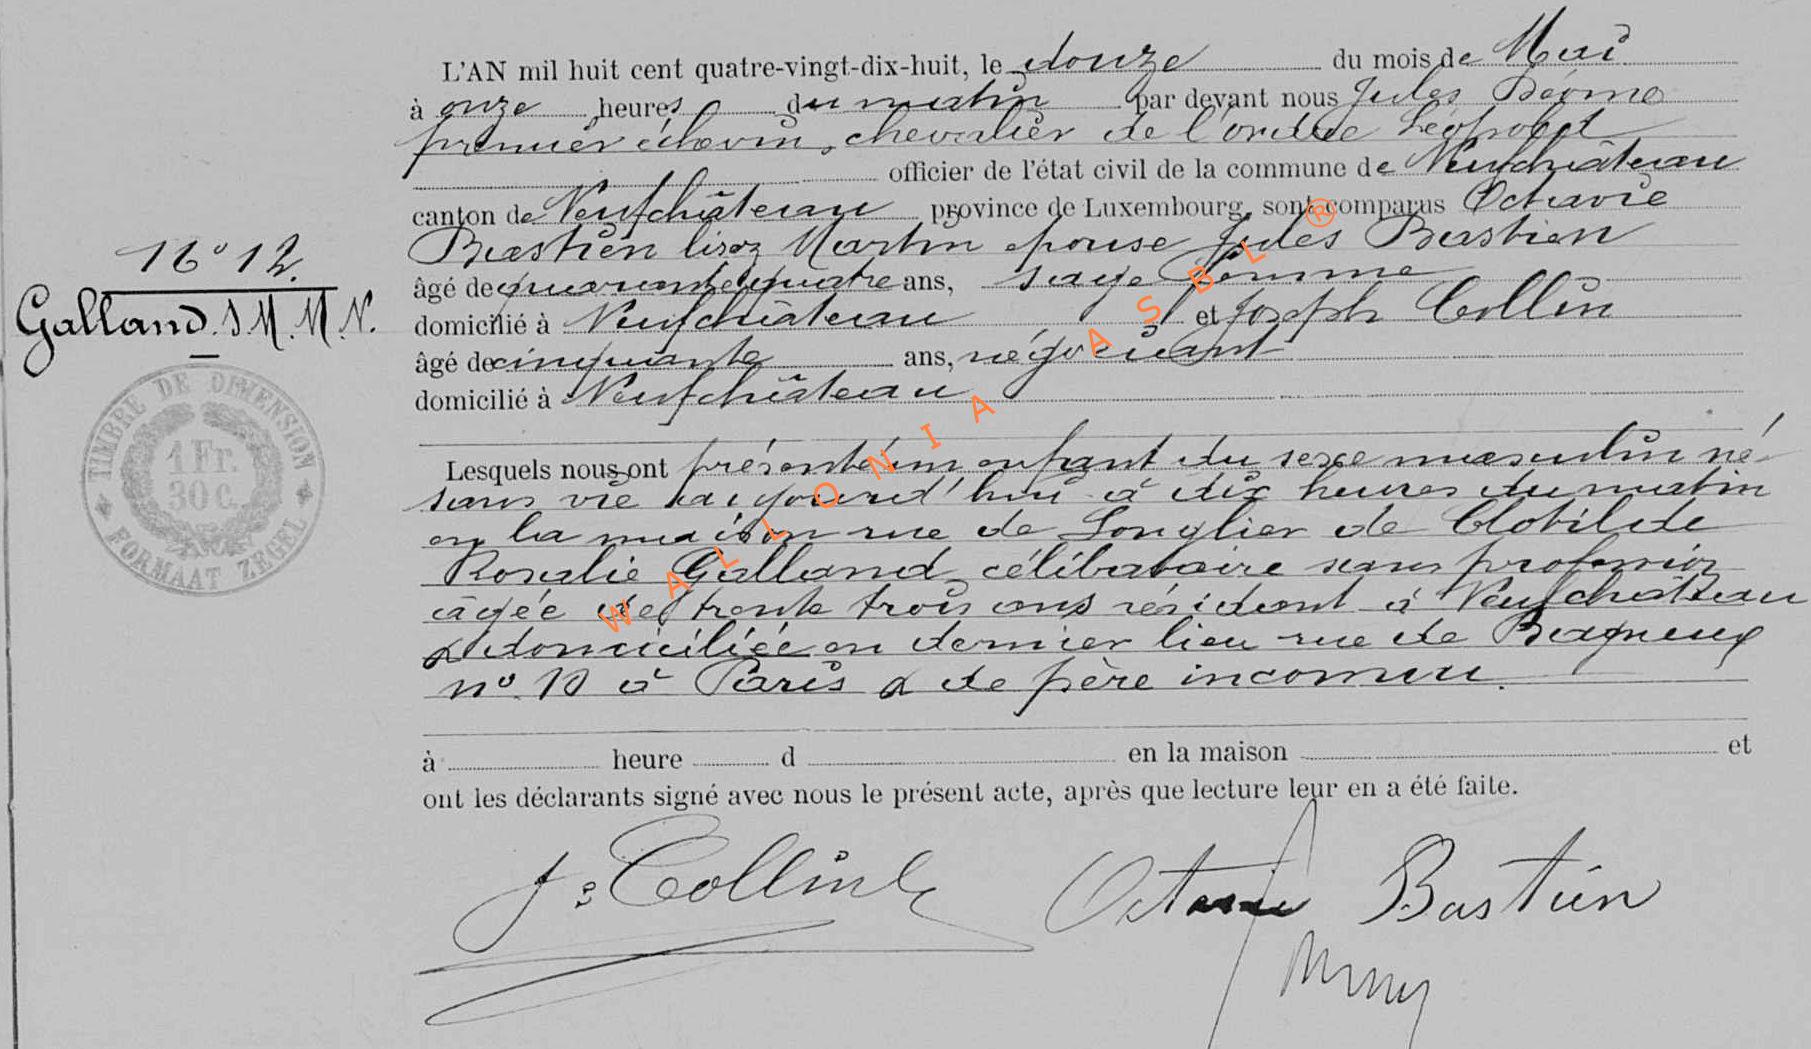 L'AN mil huit cent quatre-vingt-dix-huit, le douze du mois de Mai
à onze heures du matin par devant nous Jules
premier échevin, chevalier de l'ordre Léopold
officier de l'état civil de la commune de Neufchâteau
canton de Neufchâteau province de Luxembourg, sont comparus Octavie
Bastien lisez Martin épouse Jules Bastien
âgé de quarante quatre ans, sage femme
domicilié à Neufchâteau et Joseph Collin
âgé de cinquante ans, négociant
domicilié à Neufchâteau
N° 12.
Galland. S M. M. N.
TIMBRE DE DIMENSION
1 Fr.
30 C.
FORMAAT ZEGEL
Lesquels nous ont présenté un enfant du sexe masculin né
sans vie aujourd'hui à dix heures du matin
en la maison rue de Longlier de Clotilde
Rosalie Galland, célibataire sans profession
âgée de trente trois ans résidant à Neufchâteau
& domiciliée en dernier lieu rue de Bagneux
n° 10 à Paris & de père inconnu.
à heure d en la maison et
ont les déclarants signé avec nous le présent acte, après que lecture leur en a été faite.
J. Collin Octavie Bastien
WALLONIA ASBL ®